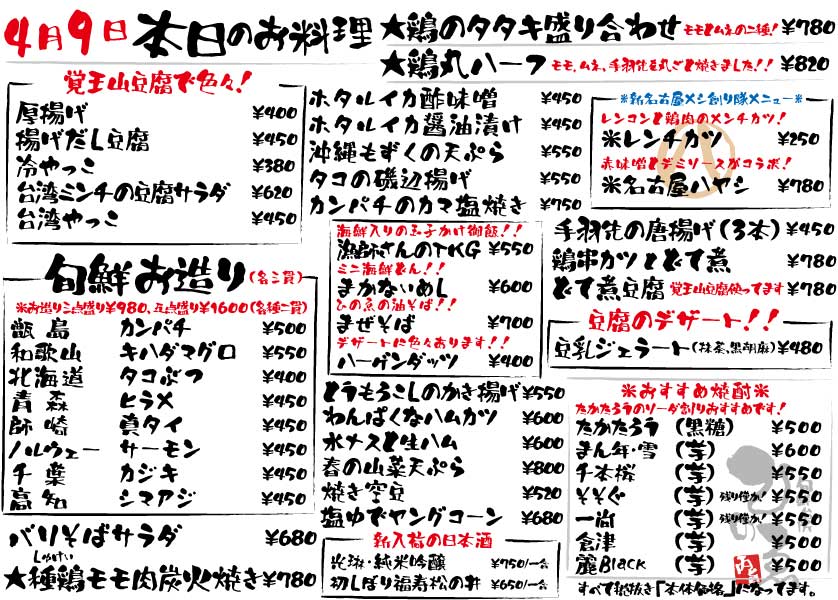 4月9日 本日のお料理
★鶏のタタキ盛り合わせ モモとムネの二種! ¥780
★鶏丸ハーフ モモ、ムネ、手羽先を丸ごと焼きました!! ¥820
覚王山豆腐で色々!
厚揚げ ¥400
揚げだし豆腐 ¥450
冷やっこ ¥380
台湾ミンチの豆腐サラダ ¥620
台湾やっこ ¥450
旬鮮お造り(各二貫)
※お造り三点盛り¥980、五点盛り¥1600(各種二貫)
甑島 カンパチ ¥500
和歌山 キハダマグロ ¥550
北海道 タコぶつ ¥400
青森 ヒラメ ¥450
師崎 真タイ ¥450
ノルウェー サーモン ¥450
千葉 カジキ ¥450
高知 シマアジ ¥450
バリそばサラダ ¥680
しゅけい
★種鶏モモ肉炭火焼き ¥780
ホタルイカ酢味噌 ¥450
ホタルイカ醤油漬け ¥450
沖縄もずくの天ぷら ¥550
タコの磯辺揚げ ¥550
カンパチのカマ塩焼き ¥750
海鮮入りの玉子かけ御飯!!
漁師さんのTKG ¥550
ミニ海鮮どん!!
まかないめし ¥600
ひの魚の油そば!!
まぜそば ¥700
デザートに色々あります!!
ハーゲンダッツ ¥400
とうもろこしのかき揚げ ¥550
わんぱくなハムカツ ¥600
水ナスと生ハム ¥600
春の山菜天ぷら ¥800
焼き空豆 ¥520
塩ゆでヤングコーン ¥680
新入荷の日本酒
光琳・純米吟醸 ¥750/一合
初しぼり福寿松の井 ¥650/一合
※新名古屋メシ創り隊メニュー※
レンコンと鶏肉のメンチカツ!
※レンチカツ ¥250
赤味噌とデミソースがコラボ!
※名古屋ハヤシ ¥780
手羽先の唐揚げ(3本) ¥450
鶏串カツとどて煮 ¥780
どて煮豆腐 覚王山豆腐使ってます ¥780
豆腐のデザート!!
豆乳ジェラート(抹茶、黒胡麻) ¥480
※おすすめ焼酎※
たかたろうのソーダ割りおすすめです!
たかたろう (黒糖) ¥500
まん年・雪 (芋) ¥600
千本桜 (芋) ¥550
そそぐ (芋) 残り僅か! ¥550
一尚 (芋) 残り僅か! ¥550
倉津 (芋) ¥500
麗Black (芋) ¥500
すべて税抜き「本体価格」になってます。